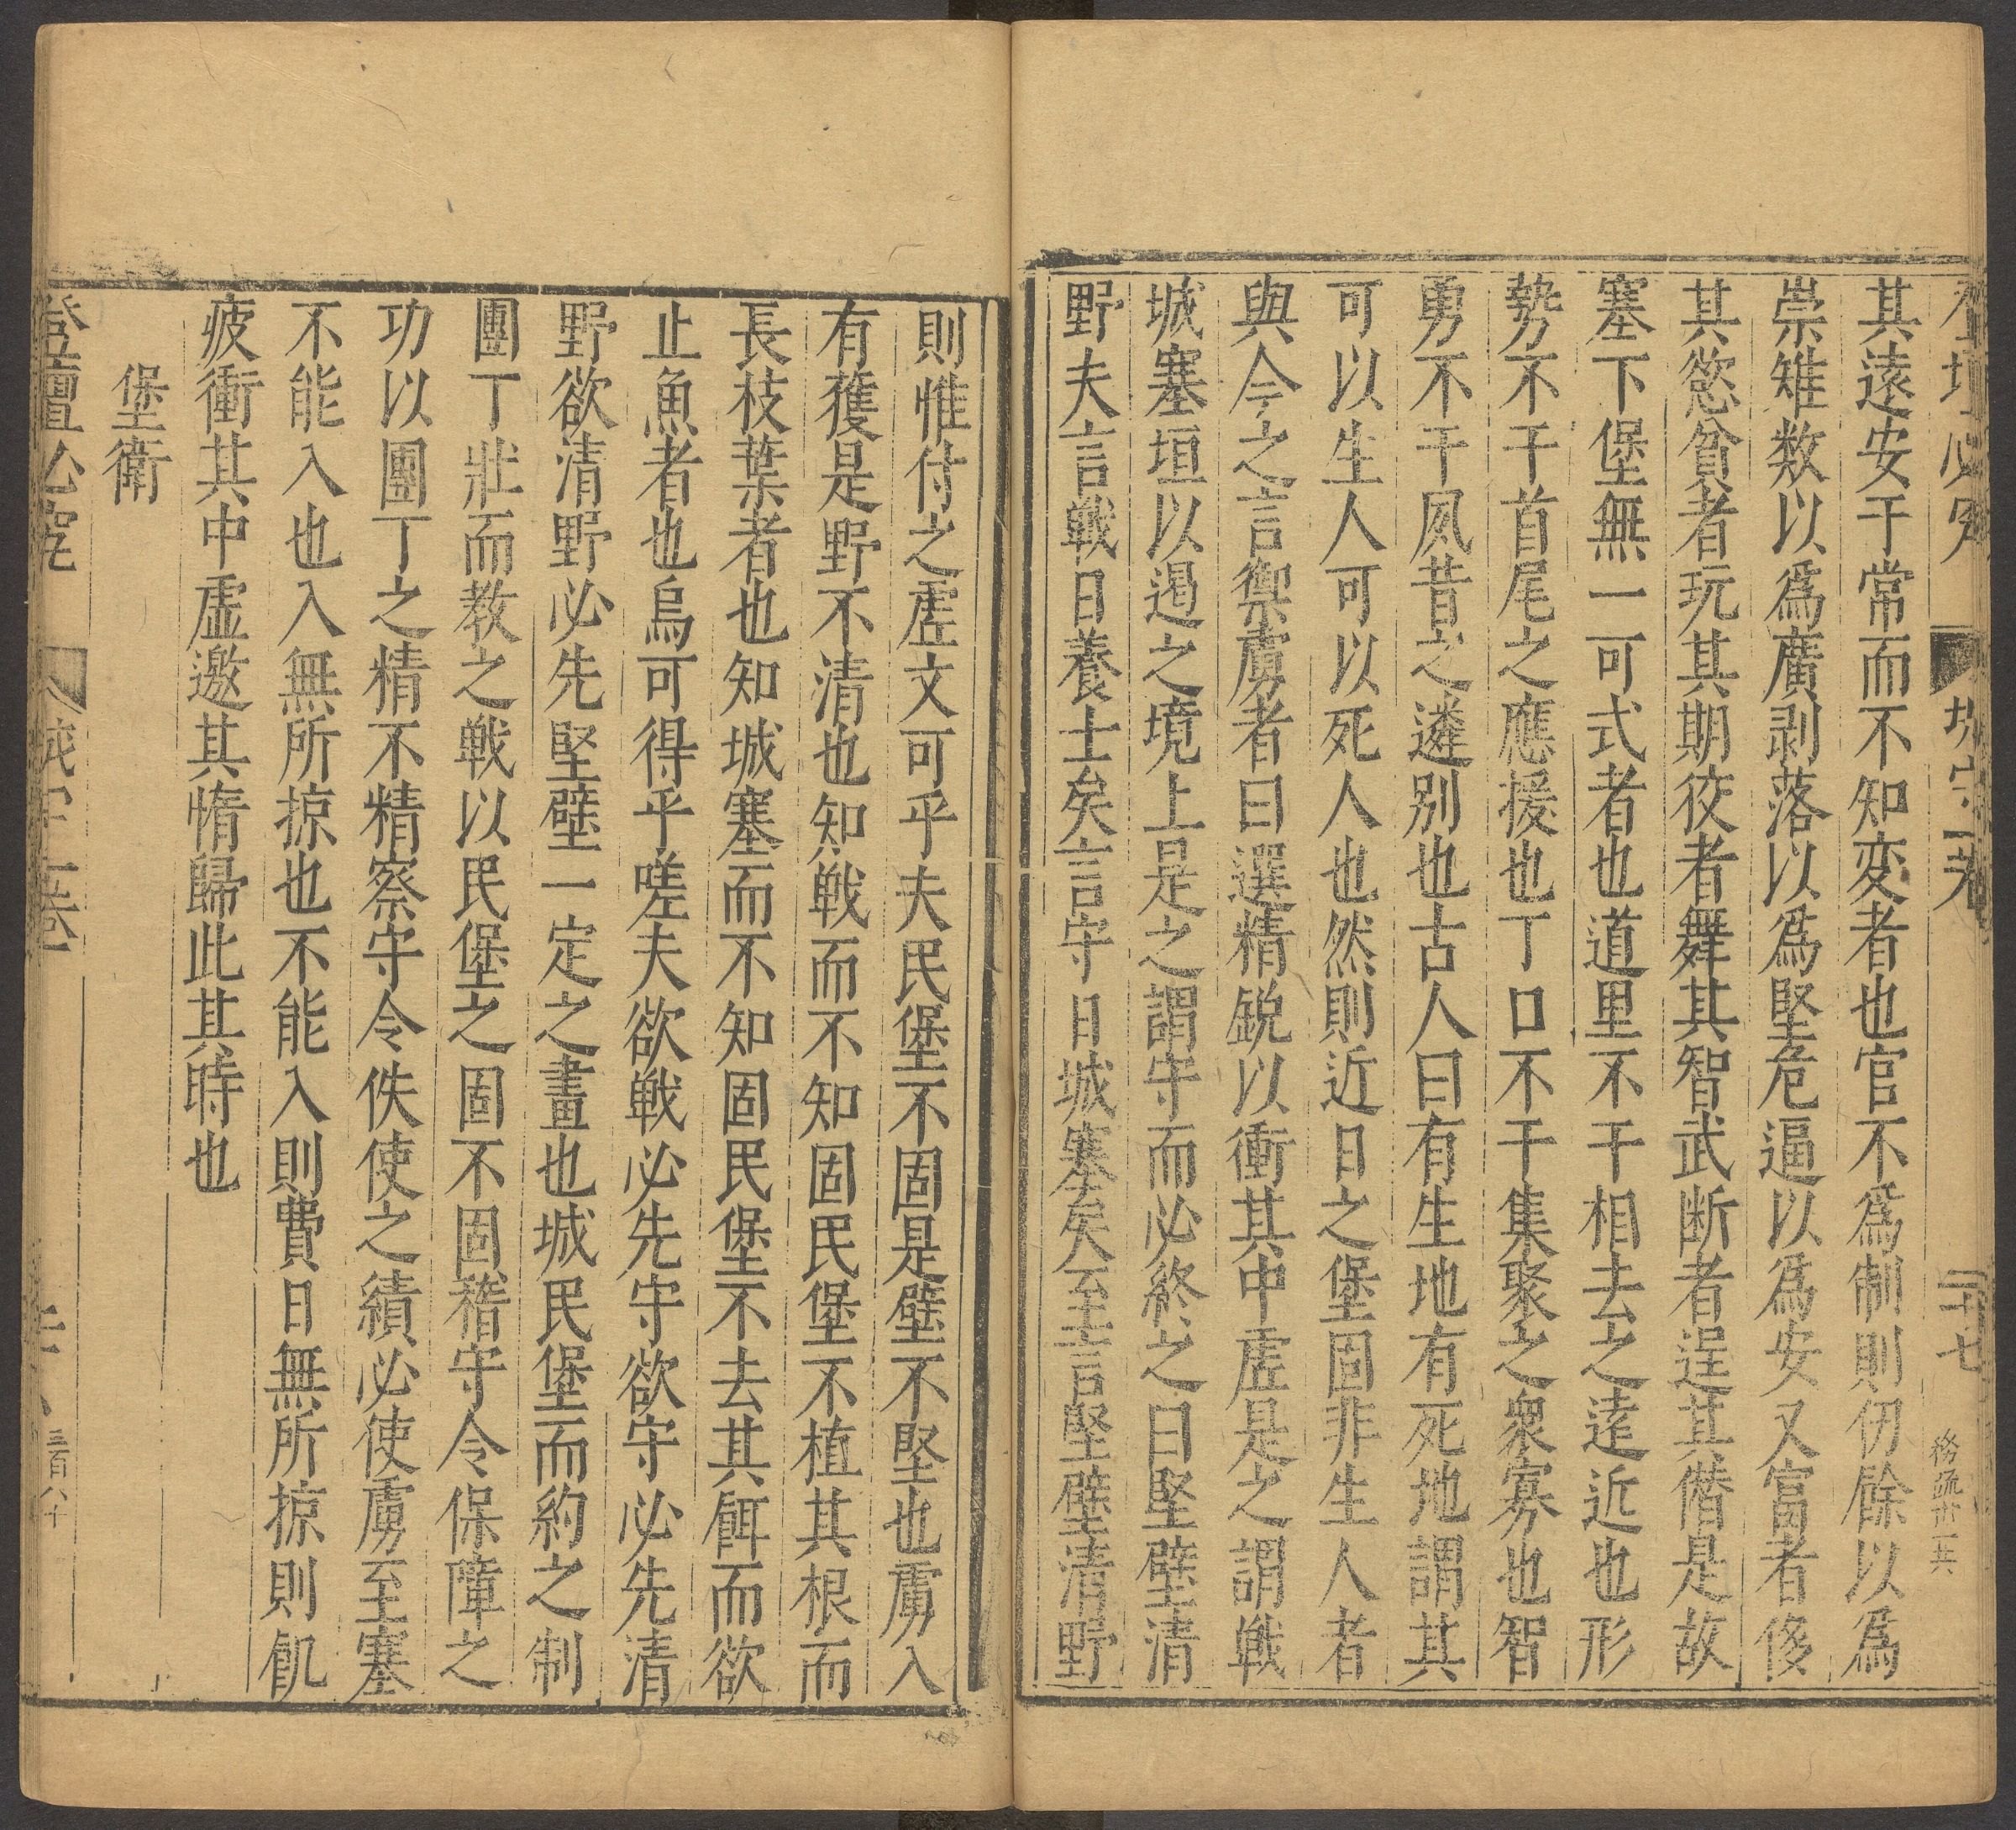 其遠安于常而不知変者也官不爲制則仞餘以爲
崇雉数以爲廣剥落以爲堅危逼以爲安又富者侈
其慾貧者玩其期狡者舞其智武断者逞其僭是故
塞下堡無一可式者也道里不干相去之遠近也形
勢不干首尾之應援也丁口不干集聚之衆寡也智
勇不干夙昔之遴别也古人曰有生地有死地謂其
可以生人可以死人也然則近日之堡固非生人者
與今之言禦虜者曰選精鋭以衝其中虛是之謂戰
城塞垣以遏之境上是之謂守而必終之曰堅壁清
野夫言戰日養士矣言守日城塞矣至言堅壁清野
則惟付之虛文可乎夫民堡不固是壁不堅也虜入
有獲是野不清也知戰而不知固民堡不植其根而
長枝葉者也知城塞而不知固民堡不去其餌而欲
止魚者也烏可得乎嗟夫欲戰必先守欲守必先清
野欲清野必先堅壁一定之畫也城民堡而約之制
團丁壯而教之戰以民堡之固不固稽守令保障之
功以團丁之精不精察守令佚使之績必使虜至塞
不能入也入無所掠也不能入則費日無所掠則飢
疲衝其中虛邀其惰歸此其時也
堡衛
登壇必究 城守一卷 三百八十